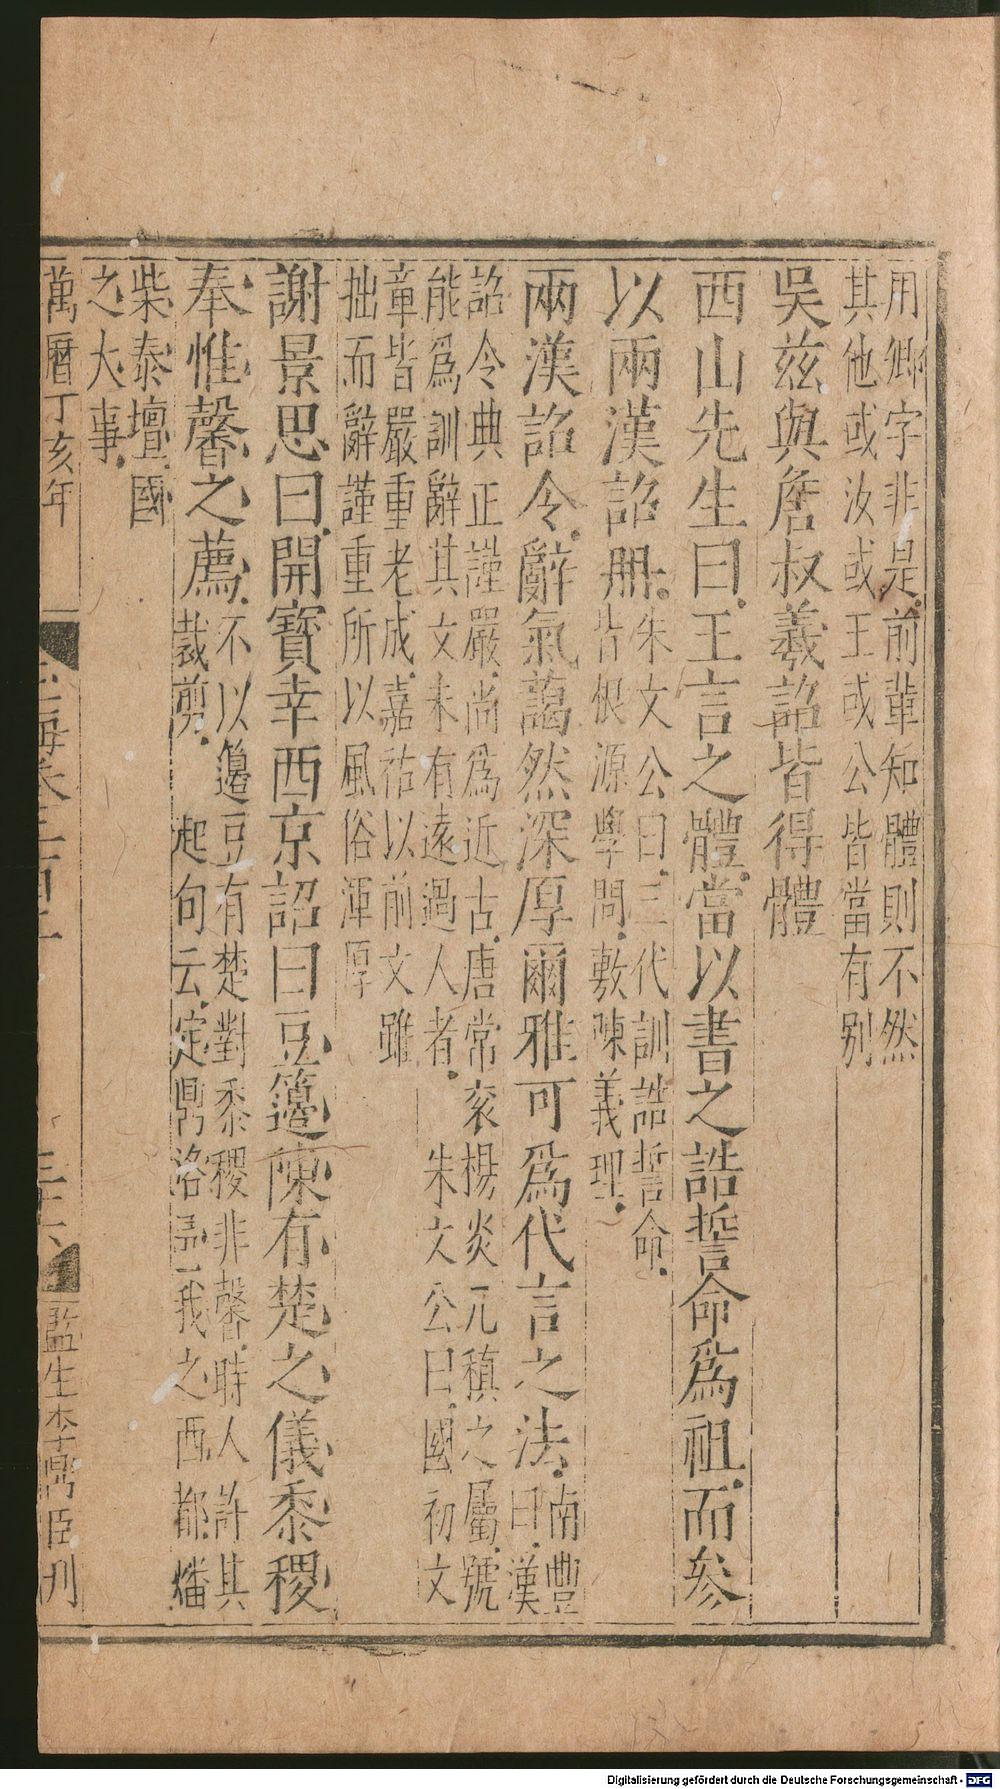 用卿字非是前輩知體則不然
其他或汝或王或公皆當有别
吳茲與詹叔羲詔皆得體
西山先生曰王言之體當以書之誥誓命爲祖而參
以兩漢詔册
朱文公曰三代訓誥誓命
皆根源學問敷陳義理
兩漢詔令辭氣藹然深厚爾雅可爲代言之法
南豐
曰漢
詔令典正謹嚴尚爲近古唐常袞楊炎元稹之屬號
能爲訓辭其文未有遠過人者 朱文公曰國初文
章皆嚴重老成嘉祐以前文雖
拙而辭謹重所以風俗渾厚
謝景思曰開寶幸西京詔曰豆籩陳有楚之儀黍稷
奉惟馨之薦
不以籩豆有楚對黍稷非馨時人許其
裁剪 起句云定鼎洛邑我之西都燔
柴泰壇國
之大事
萬曆丁亥年
玉海卷二百二
三十六
監生李鼎臣刊
Digitalisierung gefördert durch die Deutsche Forschungsgemeinschaft - DFG